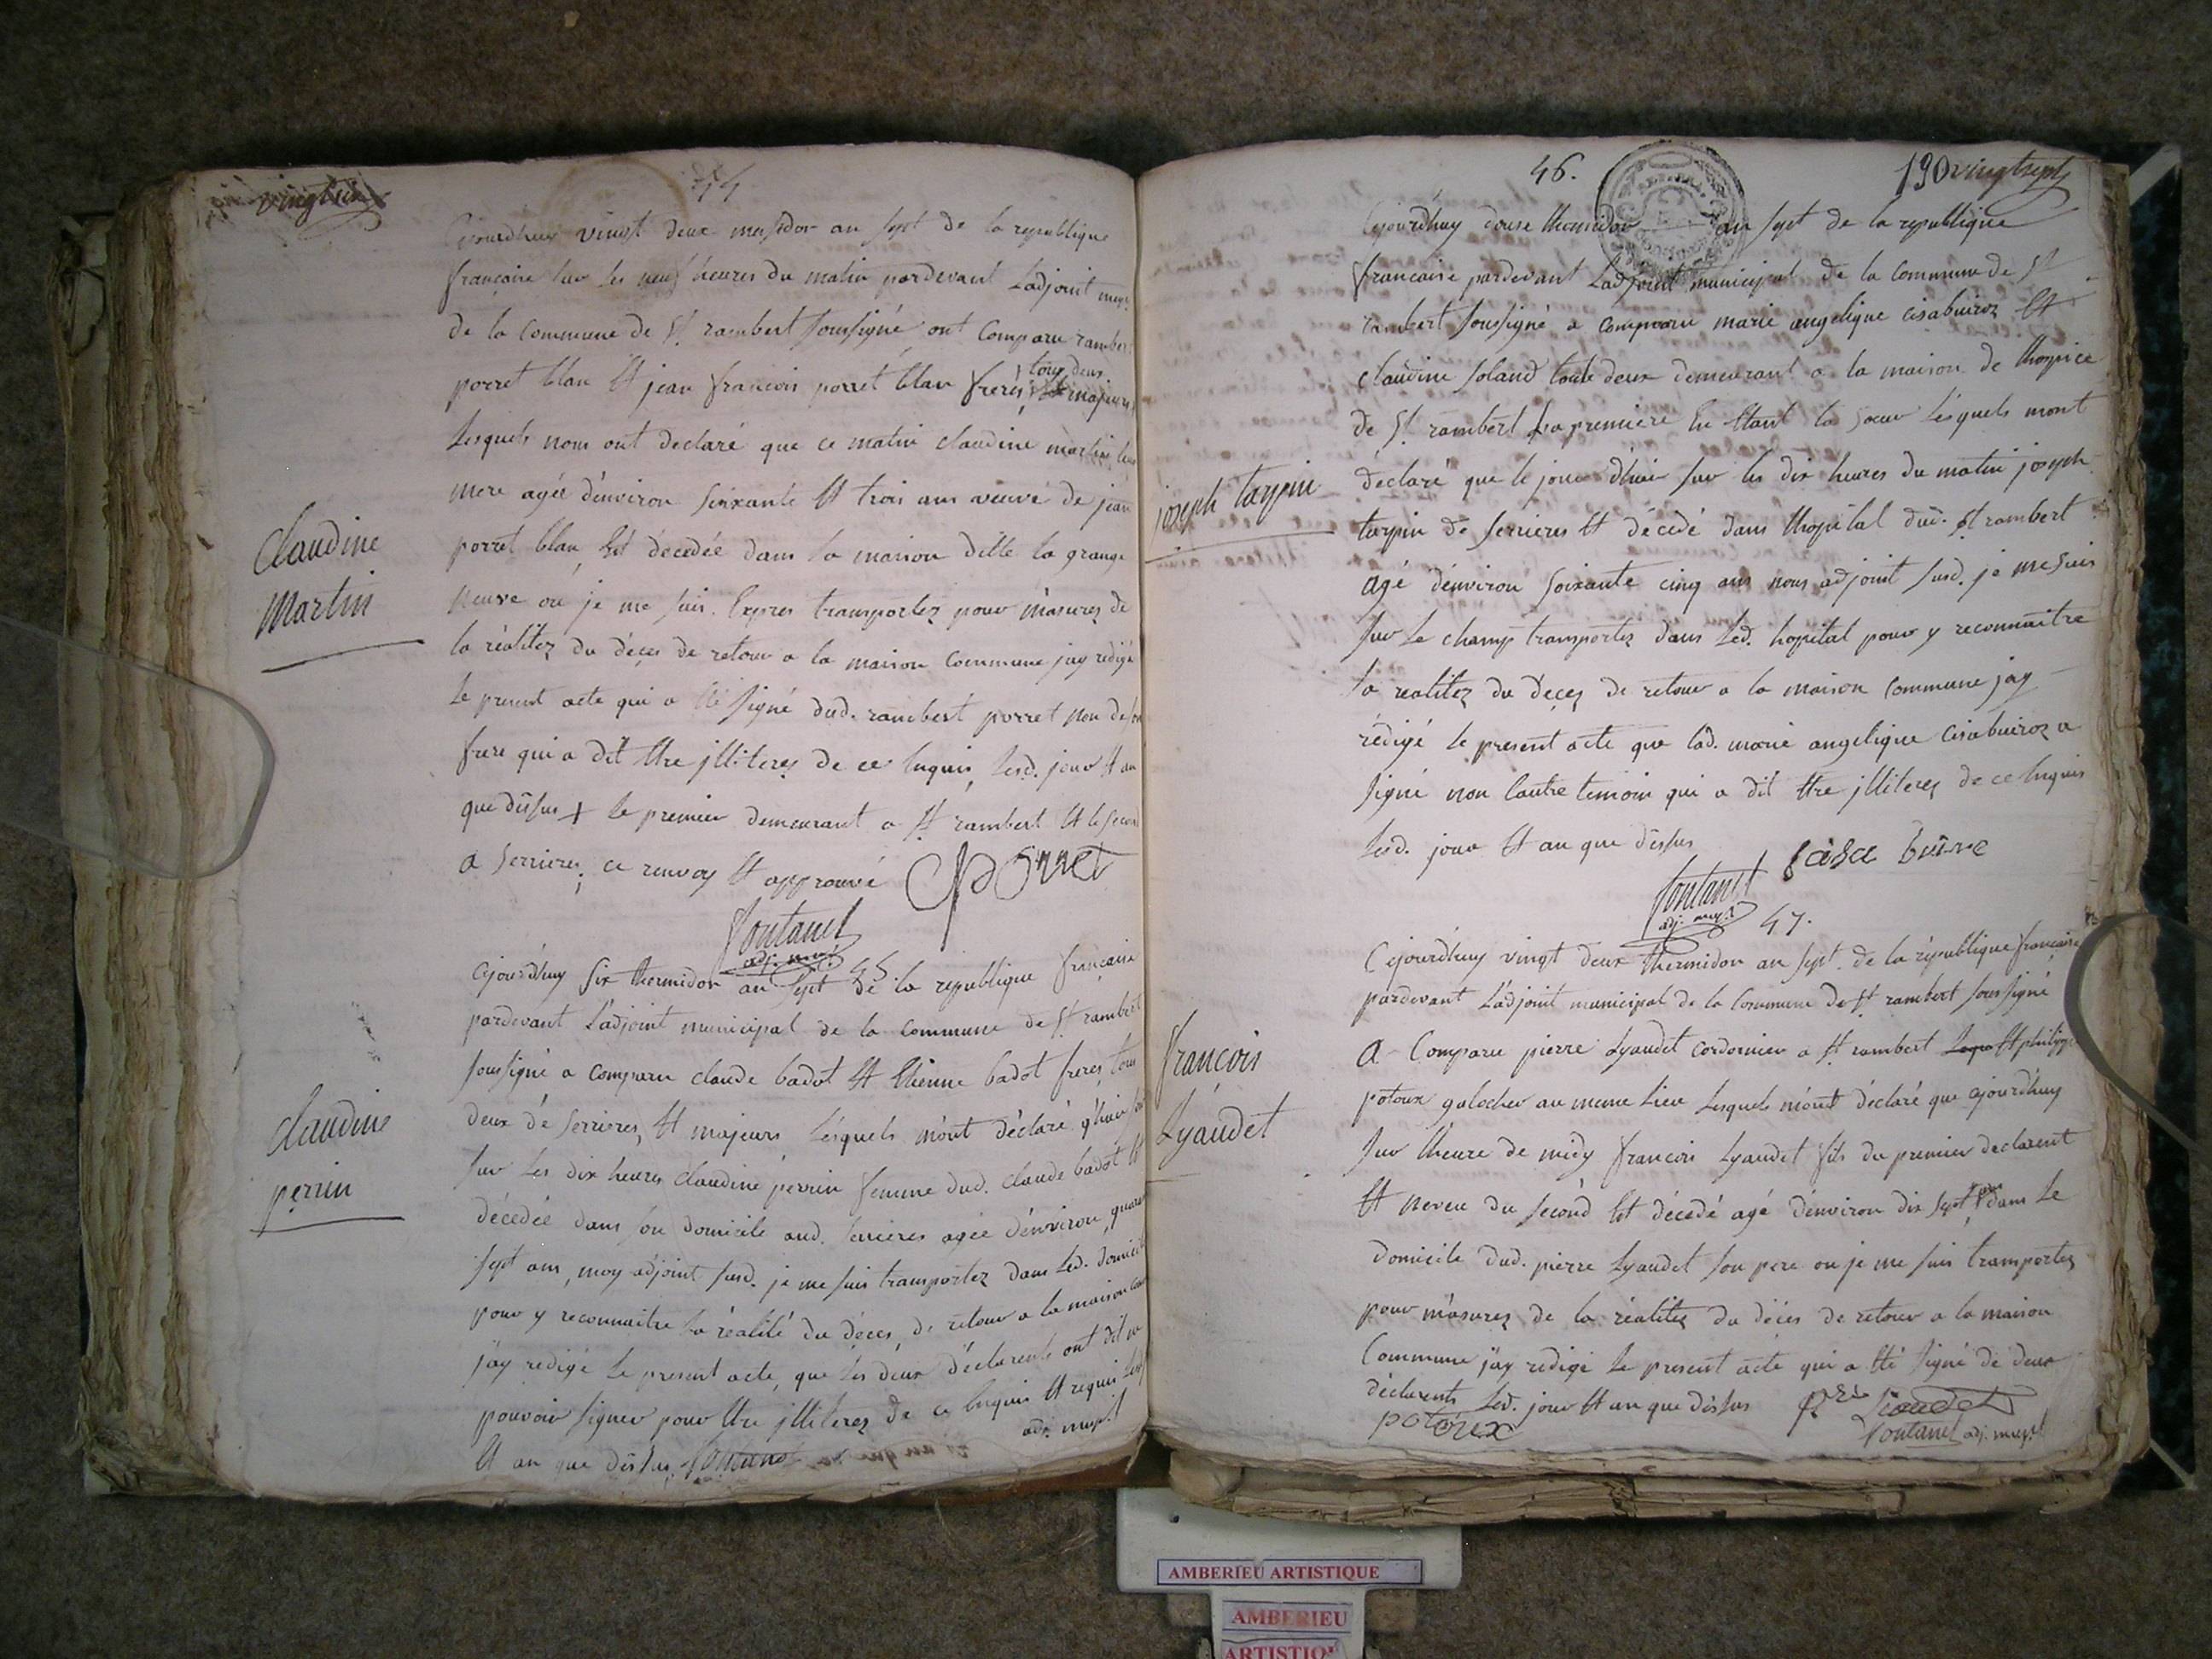 vingt six
44
Cejourdhuy vingt deux messidor an sept de la republique
française sur les neuf heures du matin pardevant Ladjoint mupl
de la commune de St. rambert soussigné ont comparu rambert
porret blan Et jean francois porret blan freres tous deux majeurs
Lesquels nous ont declaré que ce matin claudine martin leur
mere agée denviron soixante Et trois ans veuve de jean
porret blan, Est décedée dans la maison ditte la grange
neuve ou je me suis Expres transportez pour masurez de
la réalitez du déces de retour a la maison commune jay redigé
Le present acte qui a Eté signé dud. rambert porret non de son
frere qui a dit Etre jlliterez de ce Enquis, Lesd. jour Et an
que dessus + le premier demeurant a St rambert Et le second
a serrieres, ce renvoy Est approuvé porret
fontanel
adj. mupl
Claudine
Martin
45.
Cejourdhuy six thermidor an sept de la republique française
pardevant Ladjoint municipal de la commune de St. rambert
soussigné a comparu claude badot Et Etienne badot freres, tous
deux de serrieres, Et majeurs Lesquels mont déclaré qhier
sur les dix heures claudine perrin femme dud. claude badot Est
décedée dans son domicile aud. serrieres agée denviron quarante
sept ans, moy adjoint susd. je me suis transportez dans Led. domicile
pour y reconnaitre la réalité du déces, de retour a la maison
jay redigé Le present acte, que les deux déclarents ont dit ne
pouvoir signer pour Etre jlliterez de ce Enquis Et requis Lesd
Et an que dessus fontanel adj. mupl
Claudine
perrin
46.
190 vingt sept
Cejourdhuy douse thermidor an sept de la republique
francaise pardevant Ladjoint municipal de la commune de St
rambert soussigné a comparu marie angelique cisabuiroz Et
claudine soland toute deux demeurant a la maison de Lhospice
de St. rambert La premiere En Etant la soeur Lesquels mont
declaré que le jour d'hier sur les dix heures du matin joseph
tarpin de serrieres Est décedé dans Lhopital dud. St rambert
agé denviron soixante cinq ans nous adjoint susd. je me suis
sur Le champ transportez dans Led. hopital pour y reconnaitre
la realitez du déces de retour a la maison commune jay
rédigé le present acte que lad. marie angelique cisabuiroz a
signé non lautre temoin qui a dit Etre jlliterez de ce Enquis
Lesd. jour Et an que dessus
fontanel
adj. mupl
joseph tarpin
47.
Cejourdhuy vingt deux thermidor an sept. de la république française
pardevant Ladjoint municipal de la Commune de St rambert soussigné
a Comparu pierre Lyaudet cordonnier a St rambert Et philippe
potoux galocher au meme Lieu Lesquels mont déclaré que cejourdhuy
sur Lheure de midy francois Lyaudet fils du premier declarent
Et neveu du second Est décedé agé denviron dix sept ans dans Le
Domicile dud. pierre Lyaudet son pere ou je me suis transportez
pour masurez de la réalitez du déces de retour a la maison
Commune jay redigé Le present acte qui a Eté signé de deux
déclarents, Lesd. jour Et an que dessus
potoux
fontanel adj. mupl
francois
Lyaudet
AMBERIEU ARTISTIQUE
AMBERIEU
ARTISTIQU